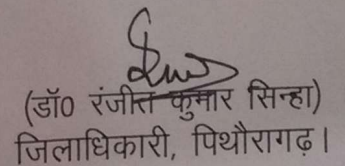 (डॉ0 रंजीत कुमार सिन्हा)
जिलाधिकारी, पिथौरागढ़।